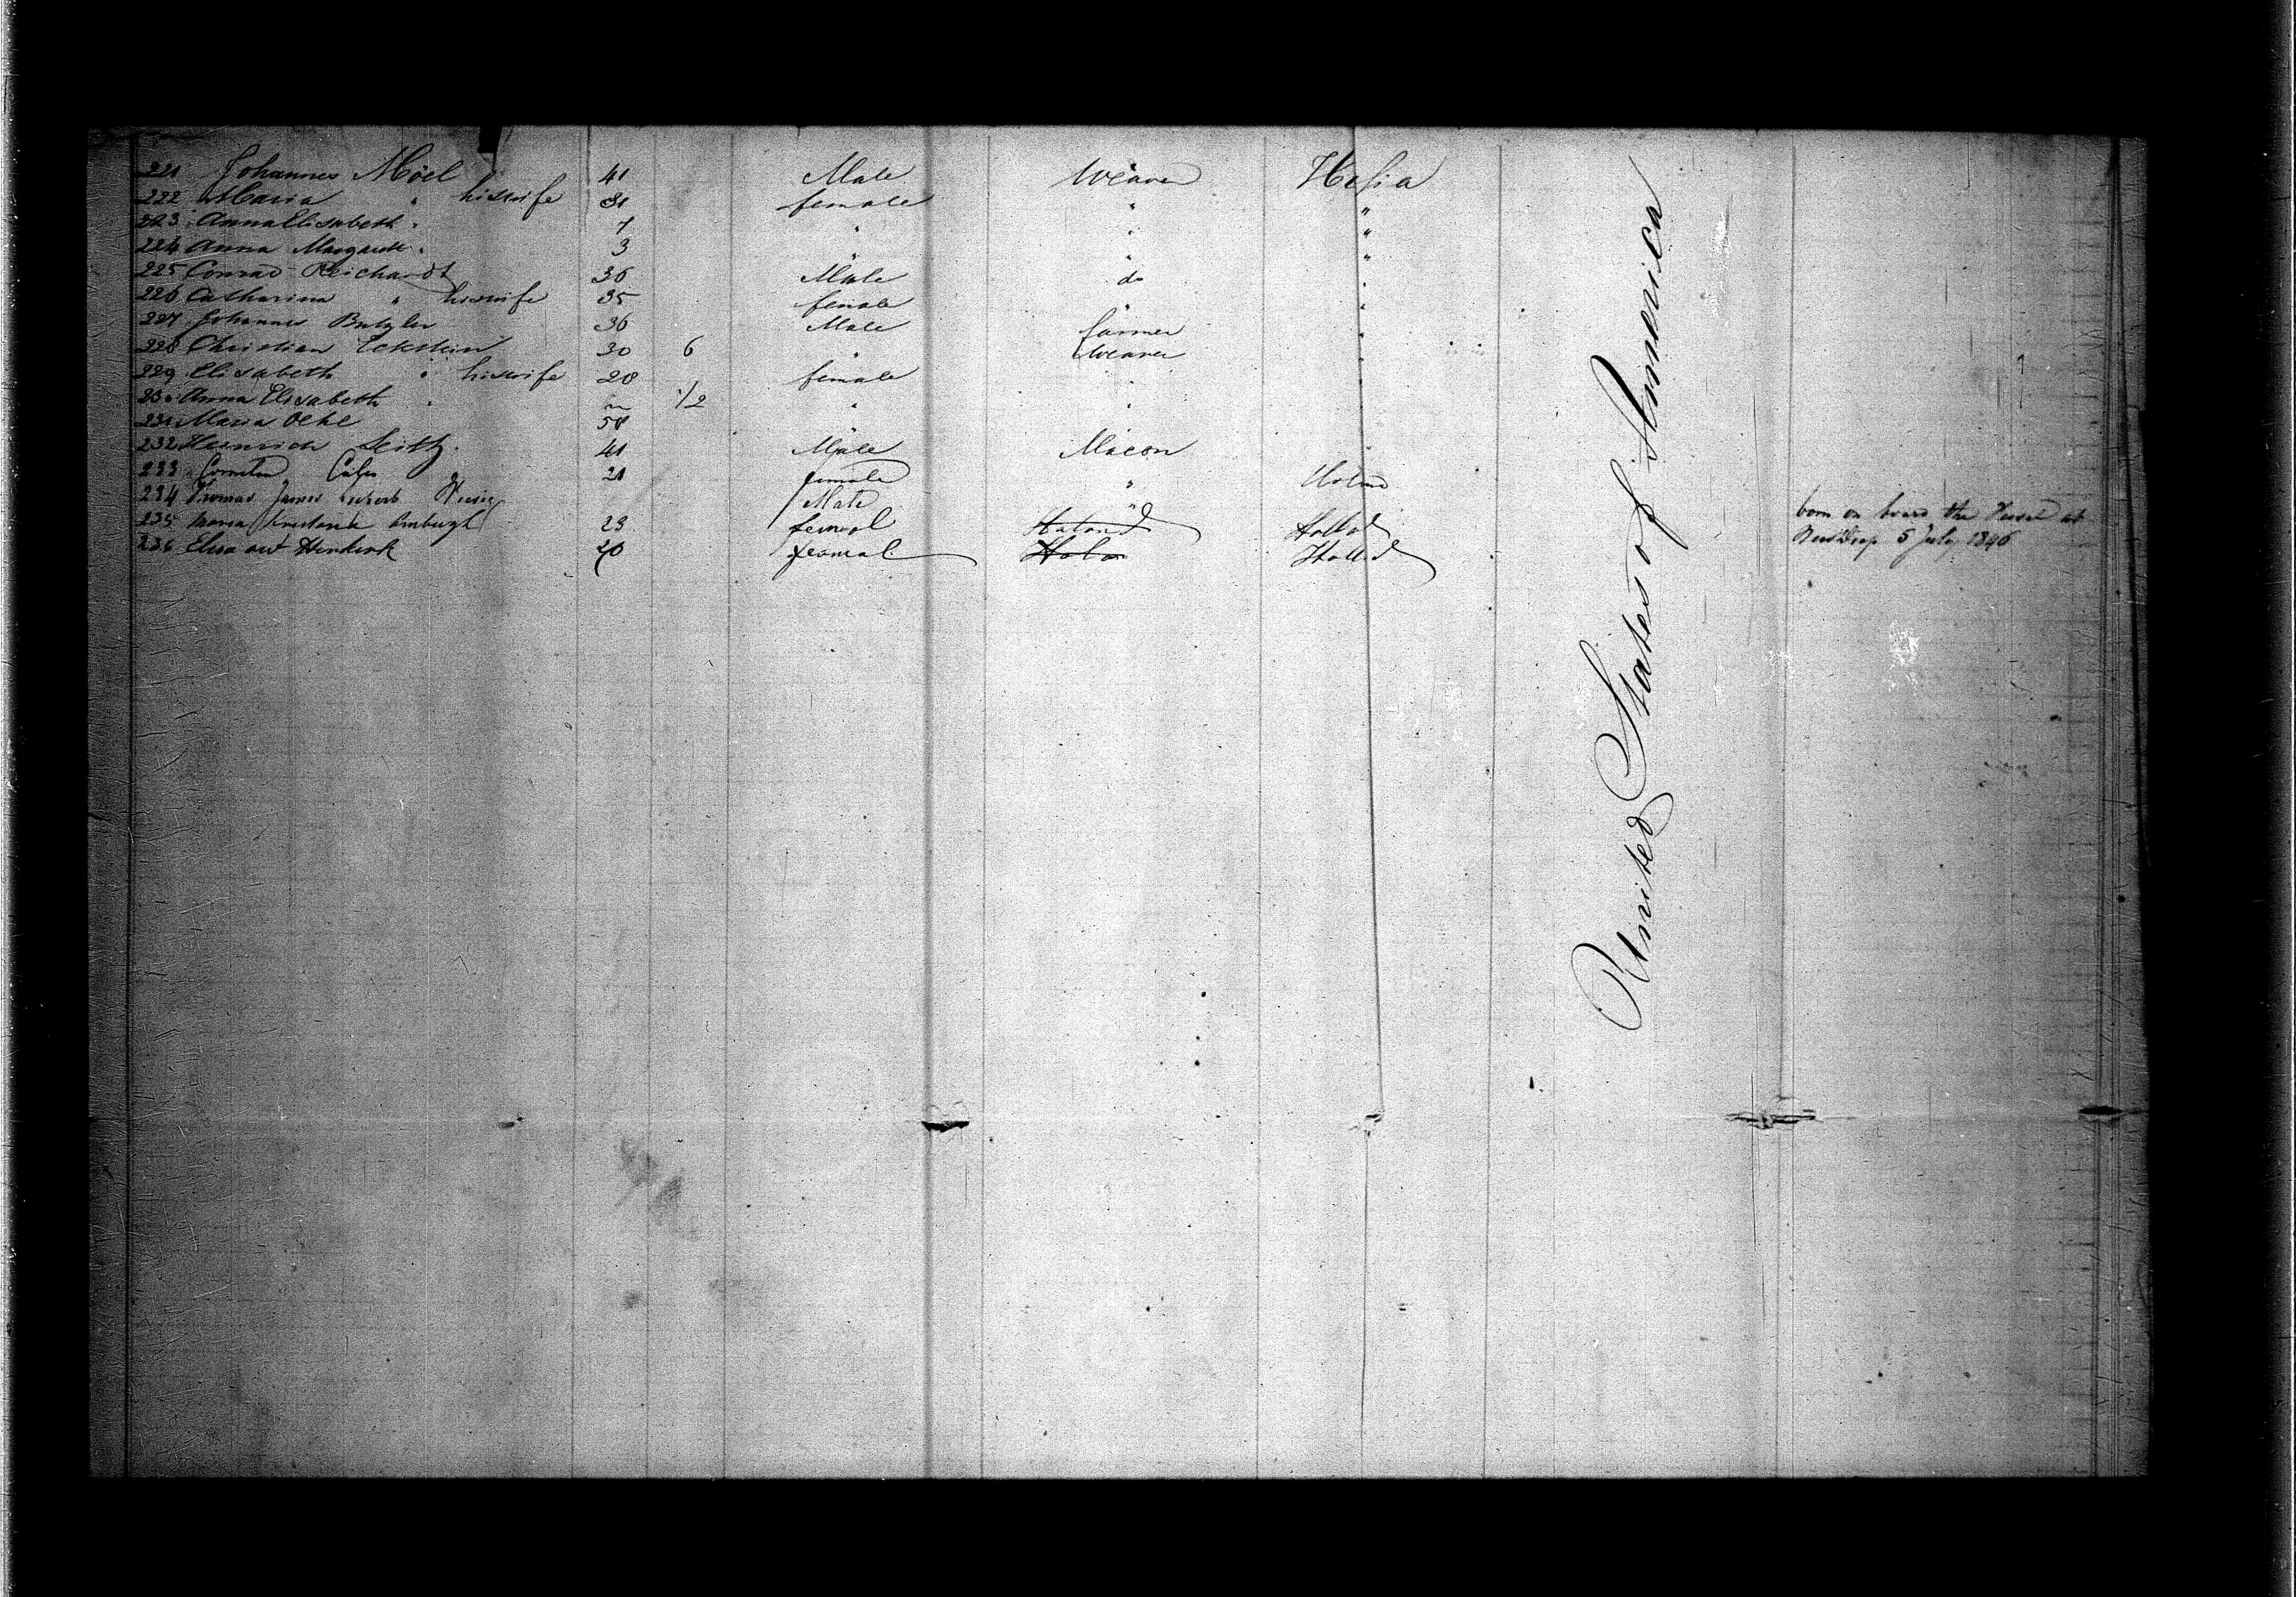 221 Johannes Möel 41 Male Weaver Hesia
222 Maria " his wife 31 female " "
223 Anna Elisabeth " 7 " " "
224 Anna Margareth " 3 " " "
225 Conrad Reichardt 36 Male do "
226 Catharina " his wife 35 female " "
227 Johannes Butzler 36 Male farmer "
228 Christian Eckstein 30 6 " Weaver "
229 Elisabeth " his wife 28 female " "
230 Anna Elisabeth " 1/2 " "
231 Maria Oehl 58 "
232 Heinrich Seitz 41 Male Macon
233 21 female "
234 Thomas James Male "
235 Maria 23 femal Holland
236 Elisa 20 femal Holland
born on board the Vessel at
5 July 1846
United States of Ammerica